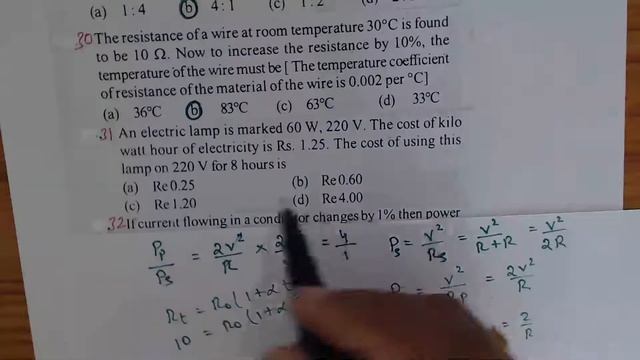 (a) 1 : 4 (b) 4 : 1 (c) 1 : 2
30 The resistance of a wire at room temperature 30°C is found
to be 10 Ω. Now to increase the resistance by 10%, the
temperature of the wire must be [ The temperature coefficient
of resistance of the material of the wire is 0.002 per °C]
(a) 36°C (b) 83°C (c) 63°C (d) 33°C
31 An electric lamp is marked 60 W, 220 V. The cost of kilo
watt hour of electricity is Rs. 1.25. The cost of using this
lamp on 220 V for 8 hours is
(a) Re 0.25 (b) Re 0.60
(c) Re 1.20 (d) Re 4.00
32 If current flowing in a conductor changes by 1% then power
Pp/Ps = 2V²/R × = 4/1 Ps = V²/Rs = V²/R+R = V²/2R
= V²/Rp = 2V²/R
Rt = Ro (1 + α t
10 = Ro (1 + α = 2/R